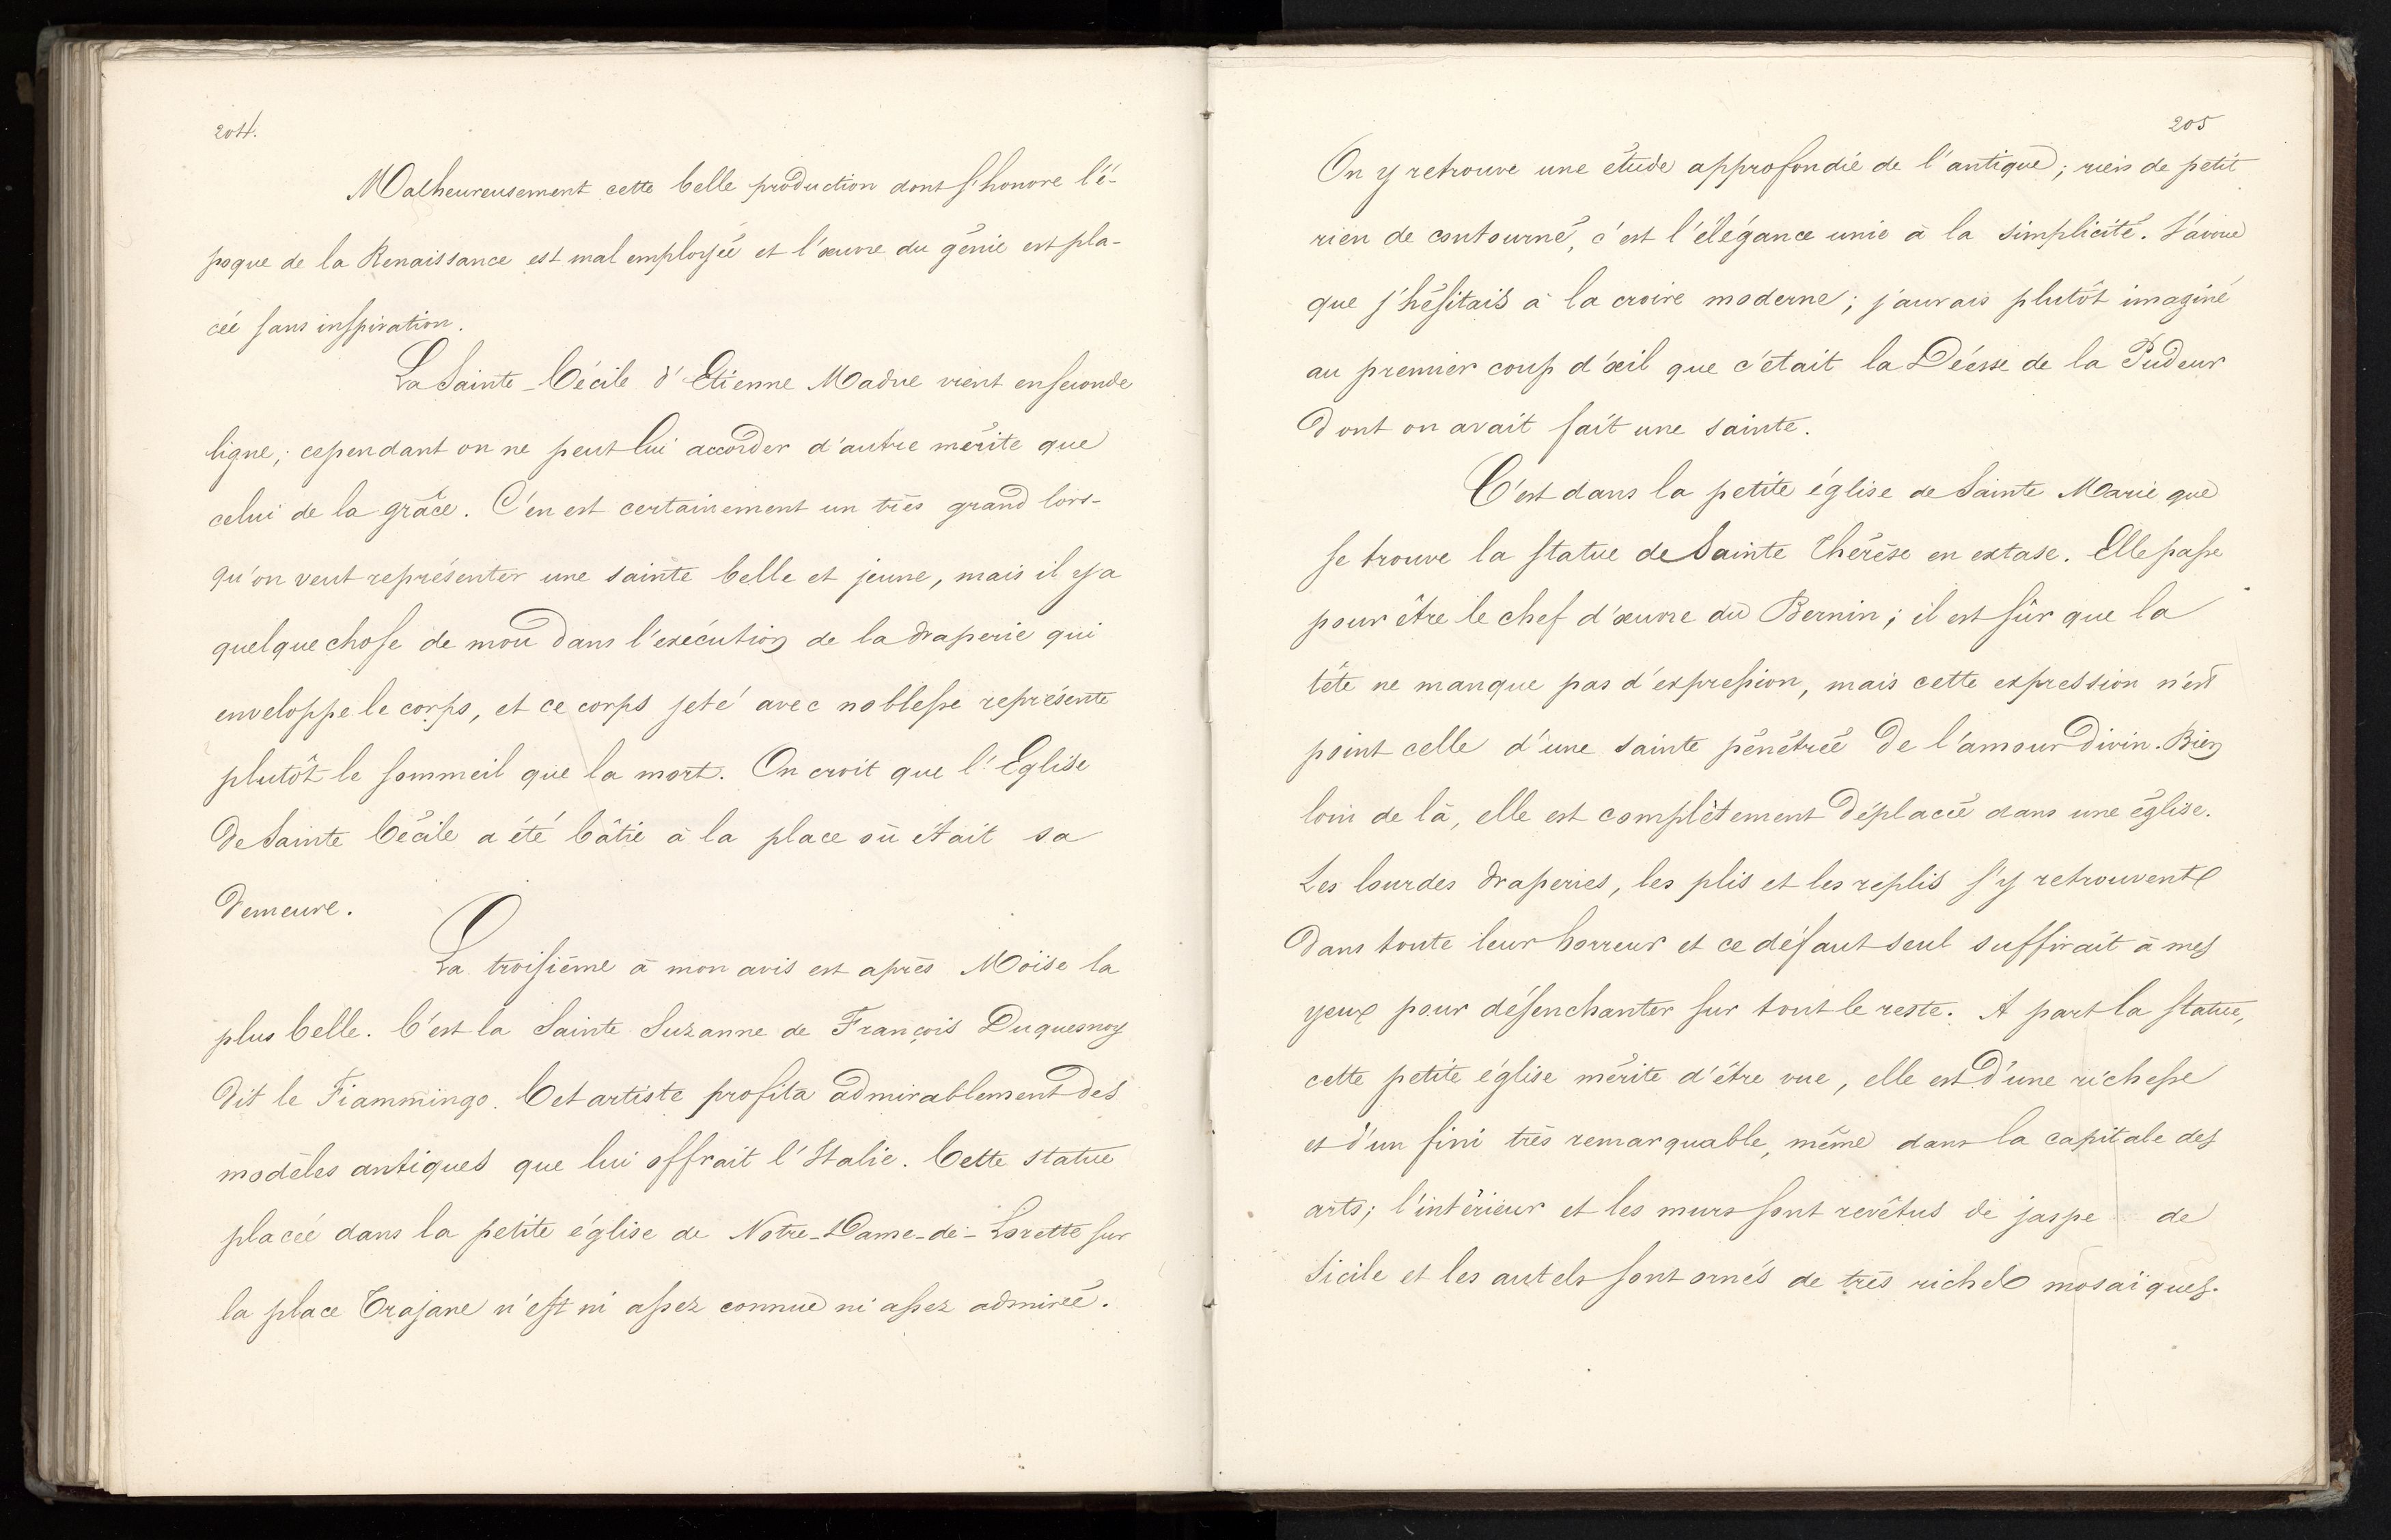 204.
Malheureusement cette belle production dont s'honore l'é-
poque de la Renaissance est mal employée et l'œuvre du génie est pla-
cée sans inspiration.
La Sainte-Cécile d'Etienne Madne vient en seconde
ligne; cependant on ne peut lui accorder d'autre mérite que
celui de la grâce. C'en est certainement un très grand lors-
qu'on veut représenter une sainte belle et jeune, mais il y a
quelque chose de mou dans l'exécution de la draperie qui
enveloppe le corps, et ce corps jeté avec noblesse représente
plutôt le sommeil que la mort. On croit que l'Eglise
de Sainte Cécile a été bâtie à la place où était sa
demeure.
La troisième à mon avis est après Moïse la
plus belle. C'est la Sainte Suzanne de François Duquesnoy
dit le Fiammingo. Cet artiste profita admirablement des
modèles antiques que lui offrait l'Italie. Cette statue
placée dans la petite église de Notre-Dame-de-Lorette sur
la place Trajane n'est ni assez connue ni assez admirée.
205
On y retrouve une étude approfondie de l'antique; rien de petit
rien de contourné, c'est l'élégance unie à la simplicité. J'avoue
que j'hésitais à la croire moderne; j'aurais plutôt imaginé
au premier coup d'œil que c'était la Déesse de la Pudeur
dont on avait fait une sainte.
C'est dans la petite église de Sainte Marie que
se trouve la statue de Sainte Thérèse en extase. Elle passe
pour être le chef d'œuvre du Bernin; il est sûr que la
tête ne manque pas d'expression, mais cette expression n'est
point celle d'une sainte pénétrée de l'amour divin. Bien
loin de là, elle est complètement déplacée dans une église.
Les lourdes draperies, les plis et les replis s'y retrouvent
dans toute leur horreur et ce défaut seul suffirait à mes
yeux pour désenchanter sur tout le reste. A part la statue,
cette petite église mérite d'être vue, elle est d'une richesse
et d'un fini très remarquable, même dans la capitale des
arts; l'intérieur et les murs sont revêtus de jaspe de
Sicile et les autels sont ornés de très riches mosaïques.